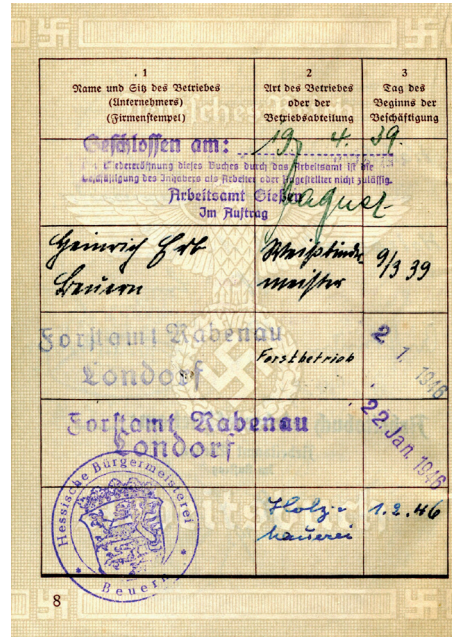 1
Name und Sitz des Betriebes
(Unternehmers)
(Firmenstempel)
2
Art des Betriebes
oder der
Betriebsabteilung
3
Tag des
Beginns der
Beschäftigung
Geschlossen am: 19. 4. 39.
Wiedereröffnung dieses Buches durch das Arbeitsamt ist die
Beschäftigung des Inhabers als Arbeiter oder Angestellter nicht zulässig.
Arbeitsamt Gießen
Im Auftrag
Heinrich Erb
Beuern
Weißbinder
meister
9/3 39
Forstamt Rabenau
Londorf
Forstbetrieb
2 1 1946
Forstamt Rabenau
Londorf
22. Jan. 1946
Hessische Bürgermeisterei
Beuern
Holz-
hauerei
1.2.46
8